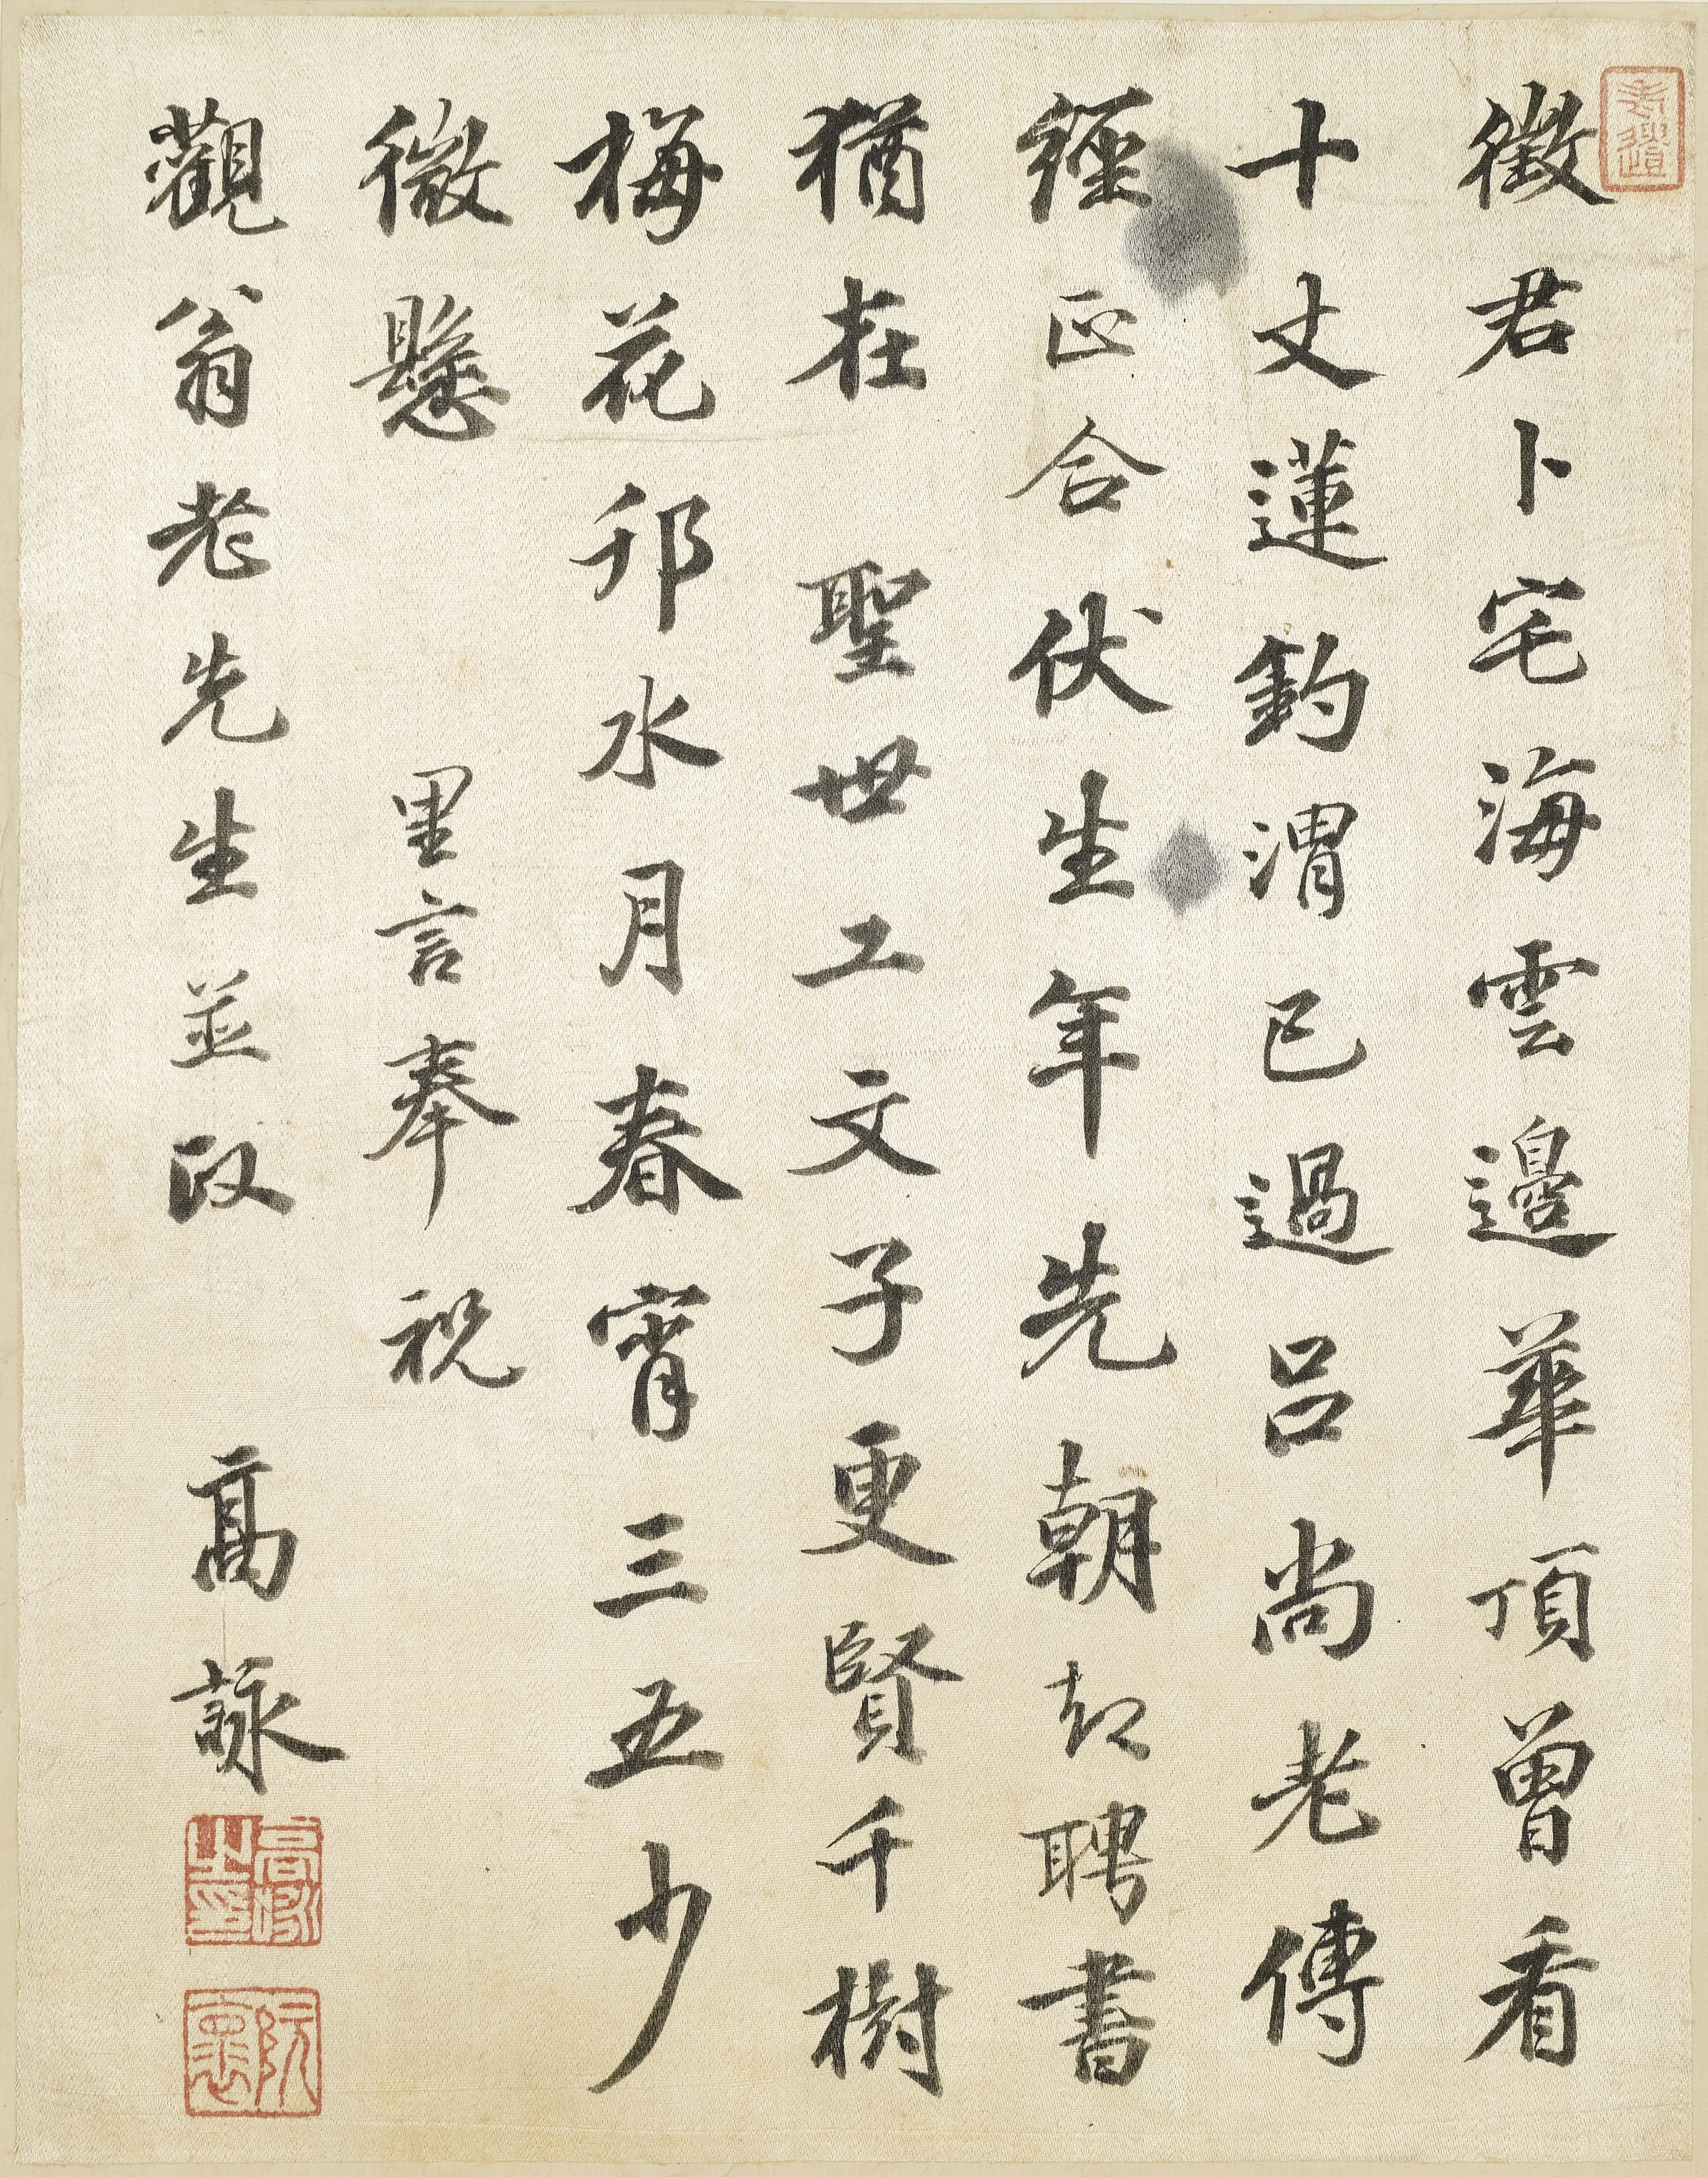 徵君卜宅海雲邊華頂曾看
十丈蓮釣渭已過呂尚老傳
經正合伏生年先朝却聘書
猶在　聖世工文子更賢千樹
梅花邗水月春宵三五少
微懸　里言奉　祝
觀翁老先生並政　高詠
高詠之印
阮懷